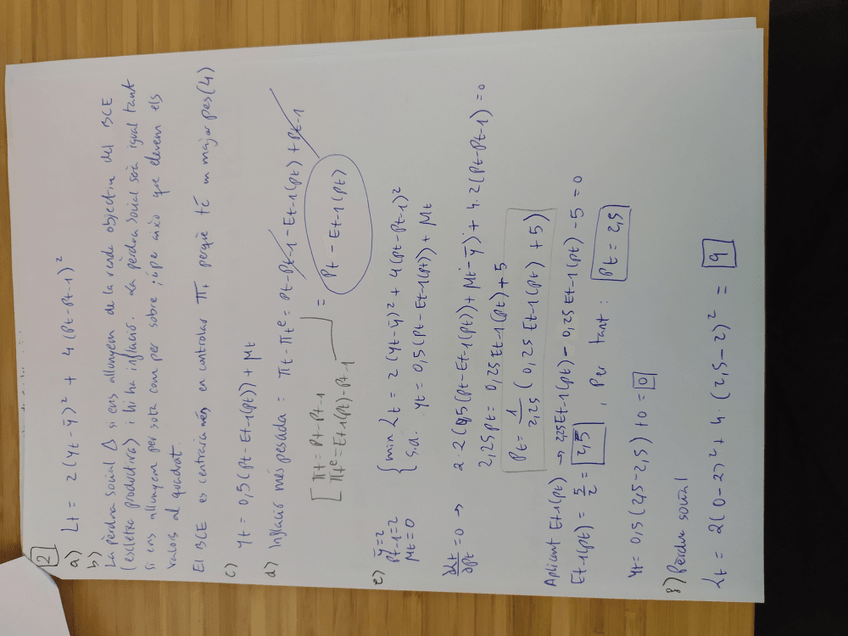 2
a) Lt = 2(yt-ȳ)² + 4(pt-pt-1)²
b)
La pèrdua social Δ si ens allunyem de la renda objectiu del BCE
(escletxa productiva) i hi ha inflació. La pèrdua social serà igual tant
si ens allunyem per sota com per sobre, ja que elevem els
valors al quadrat.
El BCE es centraria més en controlar π, perquè té un major pes (4)
c) yt = 0,5(pt-Et-1(pt)) + μt
d) Inflació més pesada = πt-πtᵉ = pt-pt-1-Et-1(pt)+pt-1
[πt = pt-pt-1
πtᵉ = Et-1(pt)-pt-1
= pt - Et-1(pt)
e) ȳ=2
pt-1=2
μt=0
{ min Lt = 2(yt-ȳ)² + 4(pt-pt-1)²
s.a. yt = 0,5(pt-Et-1(pt)) + μt
∂Lt/∂pt = 0 → 2·2(0,5(pt-Et-1(pt))+μt-ȳ) + 4·2(pt-pt-1) = 0
2,25pt = 0,25Et-1(pt)+5
pt = 1/2,25 (0,25Et-1(pt)+5)
Aplicant Et-1(pt) → 2,25Et-1(pt) - 0,25Et-1(pt) - 5 = 0
Et-1(pt) = 5/2 = 2,5, Per tant: pt = 2,5
yt = 0,5(2,5-2,5)+0 = 0
f) Pèrdua social
Lt = 2(0-2)² + 4·(2,5-2)² = 9